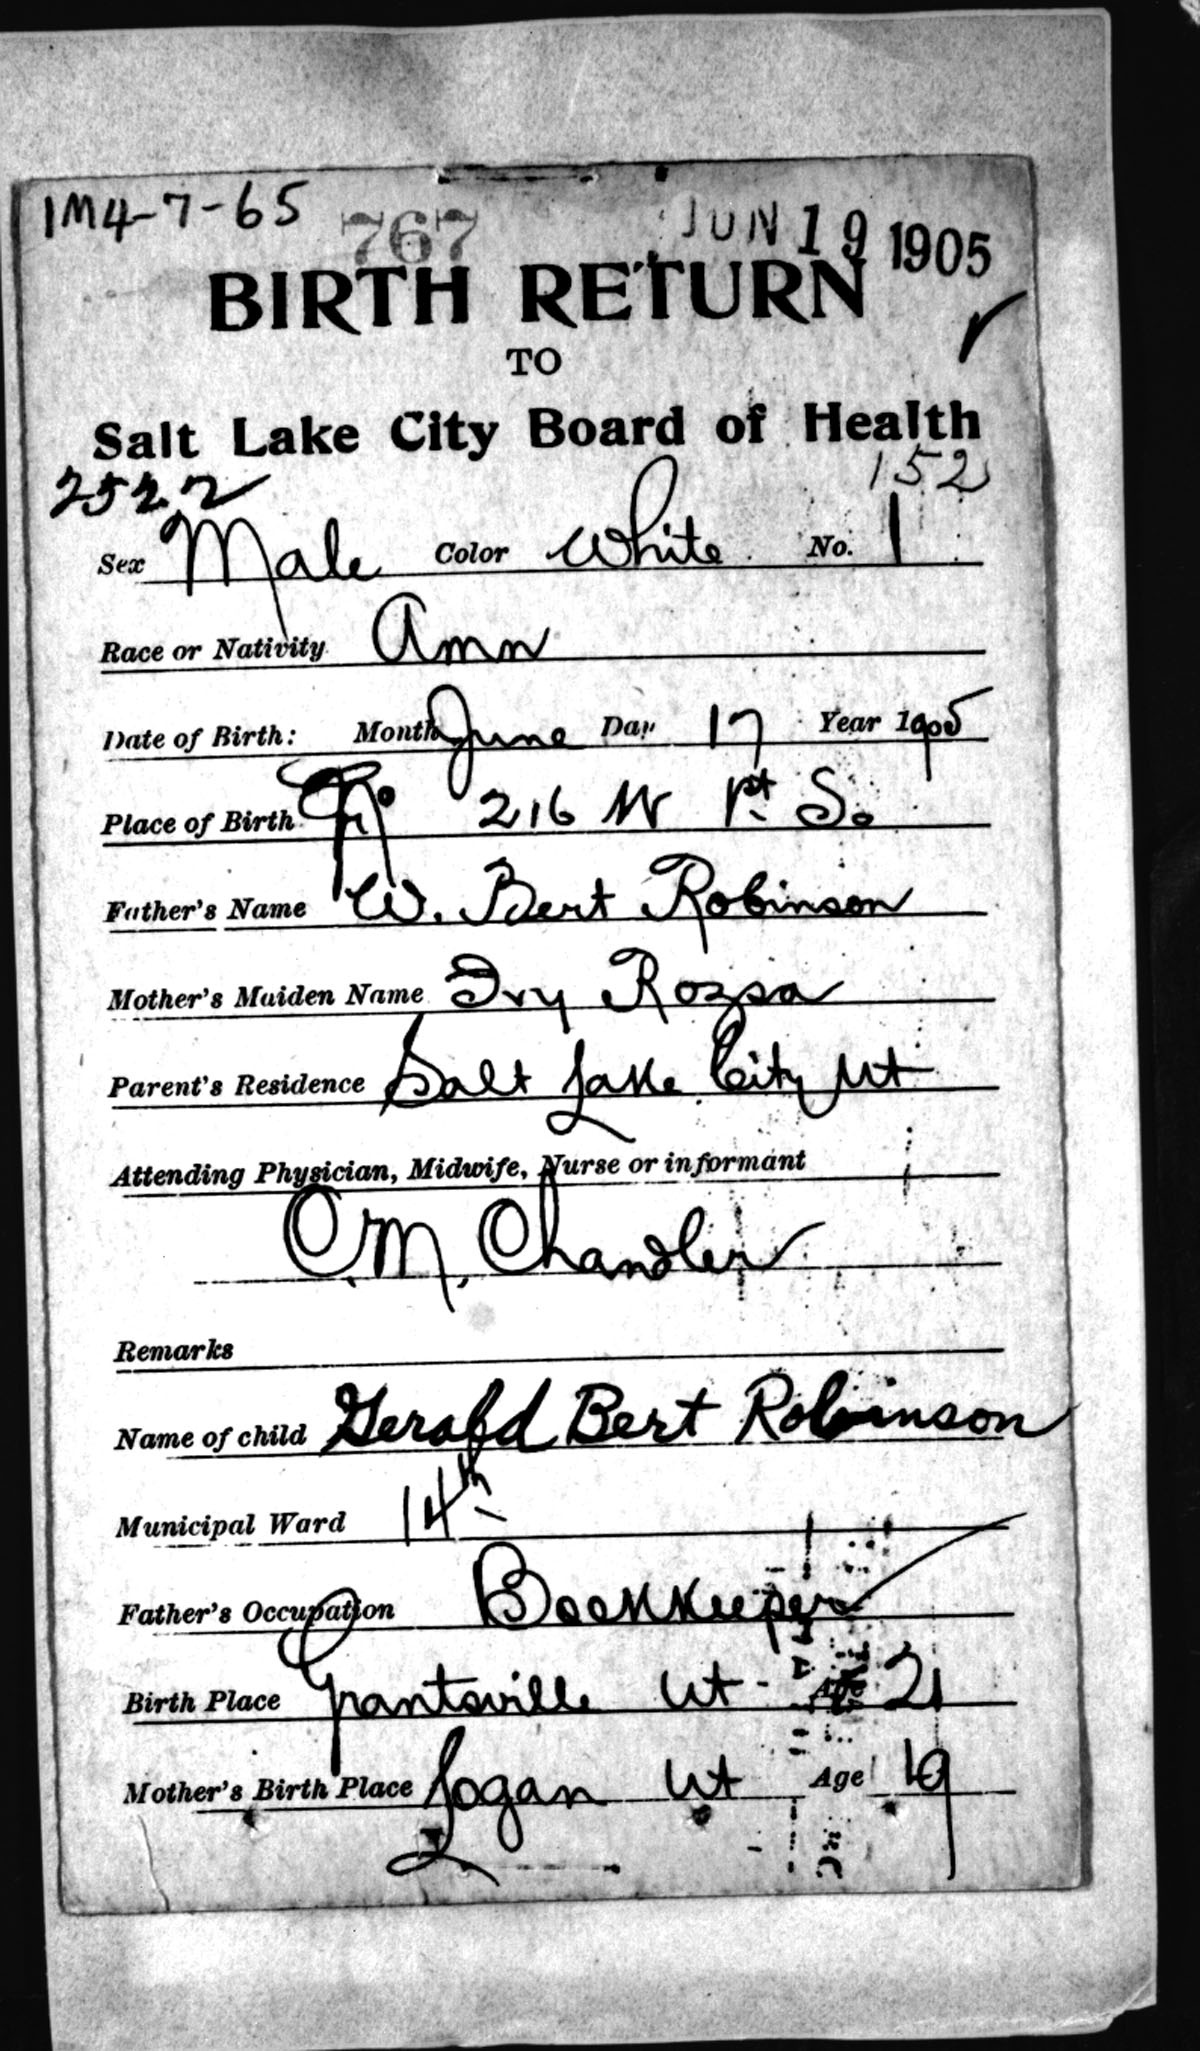 1M4-7-65 767 JUN 19 1905
BIRTH RETURN
TO
Salt Lake City Board of Health
2522 152
Sex Male Color White No. 1
Race or Nativity Amn
Date of Birth: Month June Day 17 Year 1905
Place of Birth 216 W 1st So
Father's Name W. Bert Robinson
Mother's Maiden Name Ivy Rozsa
Parent's Residence Salt Lake City Ut
Attending Physician, Midwife, Nurse or informant
O.M. Chandler
Remarks
Name of child Gerald Bert Robinson
Municipal Ward 14th
Father's Occupation Bookkeeper
Birth Place Grantsville Ut - Age 21
Mother's Birth Place Logan Ut Age 19